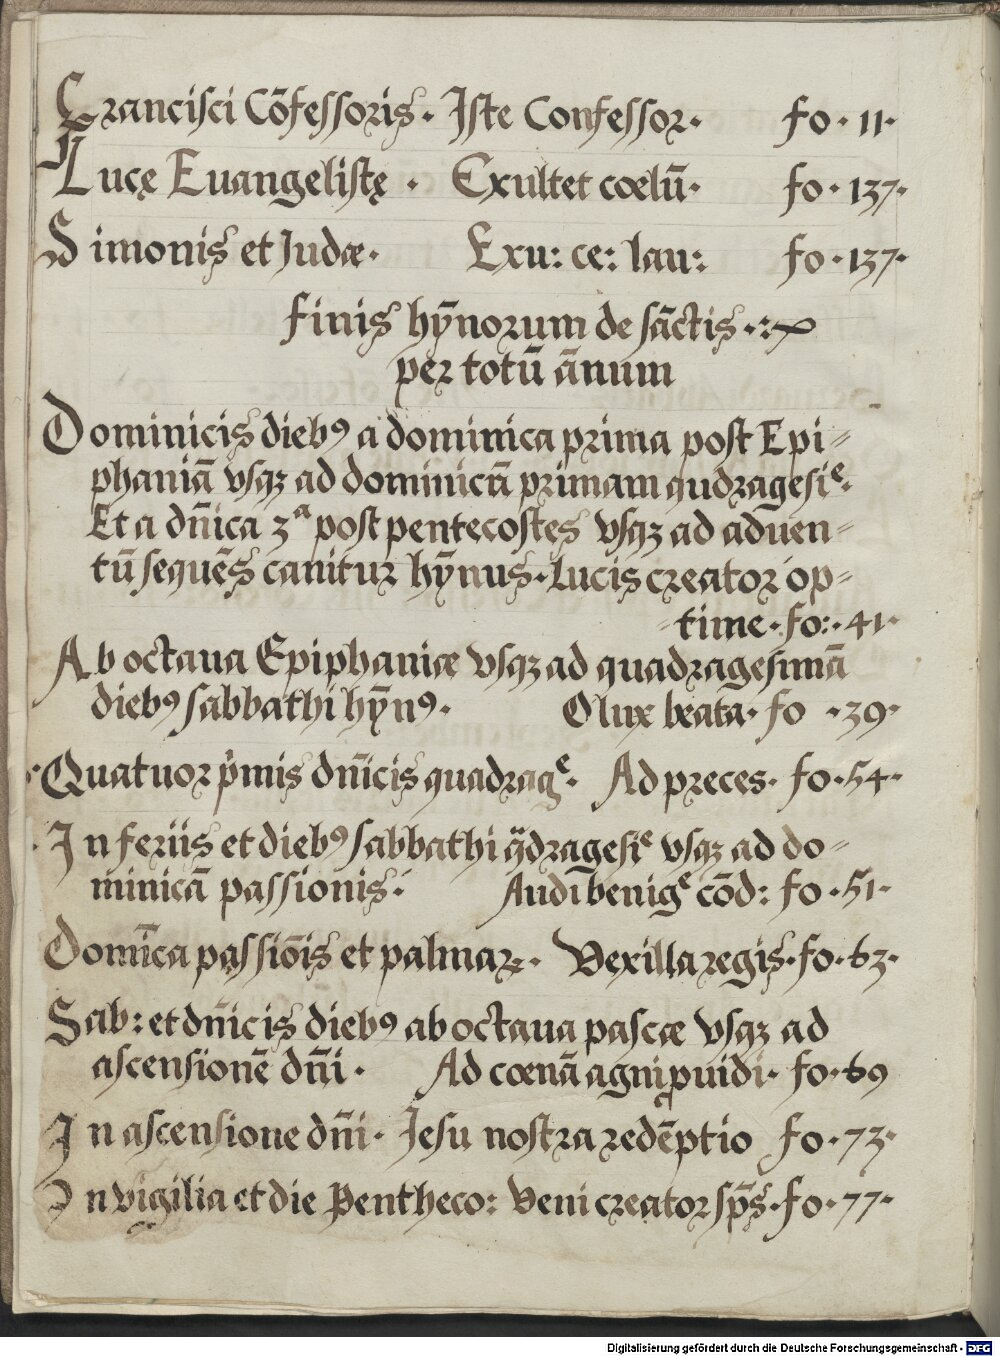 Francisci Cōfessoris. Iste Confessor. fo. 11.
Lucę Euangelistę. Exultet coelū. fo. 137.
Simonis et Judæ. Exu: ce: lau: fo. 137.
finis hȳnorum de sāctis
per totū ānum
Dominicis dieb⁹ a dominica prima post Epi-
phaniā vsqꝫ ad dominicā primam qudragesiᵉ.
Et a dn̄ica 3ᵃ post pentecostes vsqꝫ ad aduen-
tū sequēs canitur hȳnus. Lucis creator op-
time. fo:. 41.
Ab octaua Epiphaniæ vsqꝫ ad quadragesimā
dieb⁹ sabbathi hȳn⁹. O lux beata. fo. 39.
Quatuor p̄mis dn̄icis quadragᵉ. Ad preces. fo. 54.
In feriis et dieb⁹ sabbathi q̄dragesiᵉ vsqꝫ ad do-
minicā passionis. Audi benigᵉ cōd: fo. 51.
Domīca passiōis et palmaꝝ. Vexilla regis. fo. 63.
Sab: et dn̄icis dieb⁹ ab octaua pascæ vsqꝫ ad
ascensionē dn̄i. Ad cœnā agni puidi. fo. 69
In ascensione dn̄i. Jesu nostra redēptio fo. 73.
In vigilia et die Pentheco: Veni creator sp̄s. fo. 77.
Digitalisierung gefördert durch die Deutsche Forschungsgemeinschaft - DFG